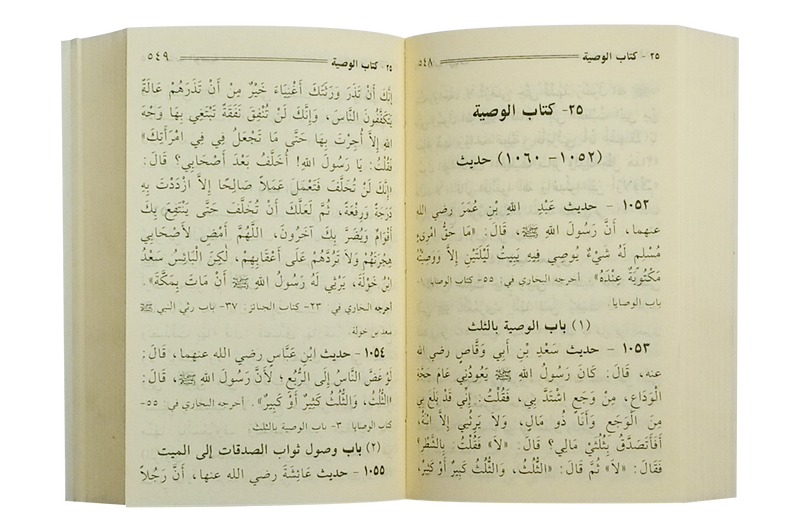 ٢٥ - كتاب الوصية
٥٤٨
٢٥- كتاب الوصية
(١٠٥٢-١٠٦٠) حديث
١٠٥٢ - حديث عَبْدِ اللهِ بْنِ عُمَرَ رضي الله
عنهما، أَنَّ رَسُولَ اللهِ ﷺ، قَالَ: «مَا حَقُّ امْرِىءٍ
مُسْلِمٍ لَهُ شَيْءٌ يُوصِي فِيهِ يَبِيتُ لَيْلَتَيْنِ إِلاَّ وَوَصِيَّتُهُ
مَكْتُوبَةٌ عِنْدَهُ». أخرجه البخاري في: ٥٥- كتاب الوصايا: ١-
باب الوصايا.
(١) باب الوصية بالثلث
١٠٥٣ - حديث سَعْدِ بْنِ أَبِي وَقَّاصٍ رضي الله
عنه، قَالَ: كَانَ رَسُولُ اللهِ ﷺ يَعُودُنِي عَامَ حَجَّةِ
الْوَدَاعِ، مِنْ وَجَعٍ اشْتَدَّ بِي، فَقُلْتُ: إِنِّي قَدْ بَلَغَ بِي
مِنَ الْوَجَعِ وَأَنَا ذُو مَالٍ، وَلاَ يَرِثُنِي إِلاَّ ابْنَةٌ،
أَفَأَتَصَدَّقُ بِثُلُثَيْ مَالِي؟ قَالَ: «لاَ» فَقُلْتُ: بِالشَّطْرِ؟
فَقَالَ: «لاَ» ثُمَّ قَالَ: «الثُّلُثُ، وَالثُّلُثُ كَبِيرٌ أَوْ كَثِيرٌ،
٢٥ - كتاب الوصية
٥٤٩
إِنَّكَ أَنْ تَذَرَ وَرَثَتَكَ أَغْنِيَاءَ خَيْرٌ مِنْ أَنْ تَذَرَهُمْ عَالَةً
يَتَكَفَّفُونَ النَّاسَ، وَإِنَّكَ لَنْ تُنْفِقَ نَفَقَةً تَبْتَغِي بِهَا وَجْهَ
اللهِ إِلاَّ أُجِرْتَ بِهَا حَتَّى مَا تَجْعَلُ فِي فِي امْرَأَتِكَ»
فَقُلْتُ: يَا رَسُولَ اللهِ! أُخَلَّفُ بَعْدَ أَصْحَابِي؟ قَالَ:
«إِنَّكَ لَنْ تُخَلَّفَ فَتَعْمَلَ عَمَلاً صَالِحًا إِلاَّ ازْدَدْتَ بِهِ
دَرَجَةً وَرِفْعَةً، ثُمَّ لَعَلَّكَ أَنْ تُخَلَّفَ حَتَّى يَنْتَفِعَ بِكَ
أَقْوَامٌ وَيُضَرَّ بِكَ آخَرُونَ، اللَّهُمَّ أَمْضِ لأَصْحَابِي
هِجْرَتَهُمْ وَلاَ تَرُدَّهُمْ عَلَى أَعْقَابِهِمْ، لَكِنِ الْبَائِسُ سَعْدُ
ابْنُ خَوْلَةَ، يَرْثِي لَهُ رَسُولُ اللهِ ﷺ أَنْ مَاتَ بِمَكَّةَ».
أخرجه البخاري في: ٢٣- كتاب الجنائز: ٣٧- باب رثي النبي ﷺ
سعد بن خولة
١٠٥٤ - حديث ابْنِ عَبَّاسٍ رضي الله عنهما، قَالَ:
لَوْ غَضَّ النَّاسُ إِلَى الرُّبْعِ؛ لأَنَّ رَسُولَ اللهِ ﷺ، قَالَ:
«الثُّلُثُ، وَالثُّلُثُ كَثِيرٌ أَوْ كَبِيرٌ». أخرجه البخاري في: ٥٥-
كتاب الوصايا: ٣- باب الوصية بالثلث.
(٢) باب وصول ثواب الصدقات إلى الميت
١٠٥٥ - حديث عَائِشَةَ رضي الله عنها، أَنَّ رَجُلاً